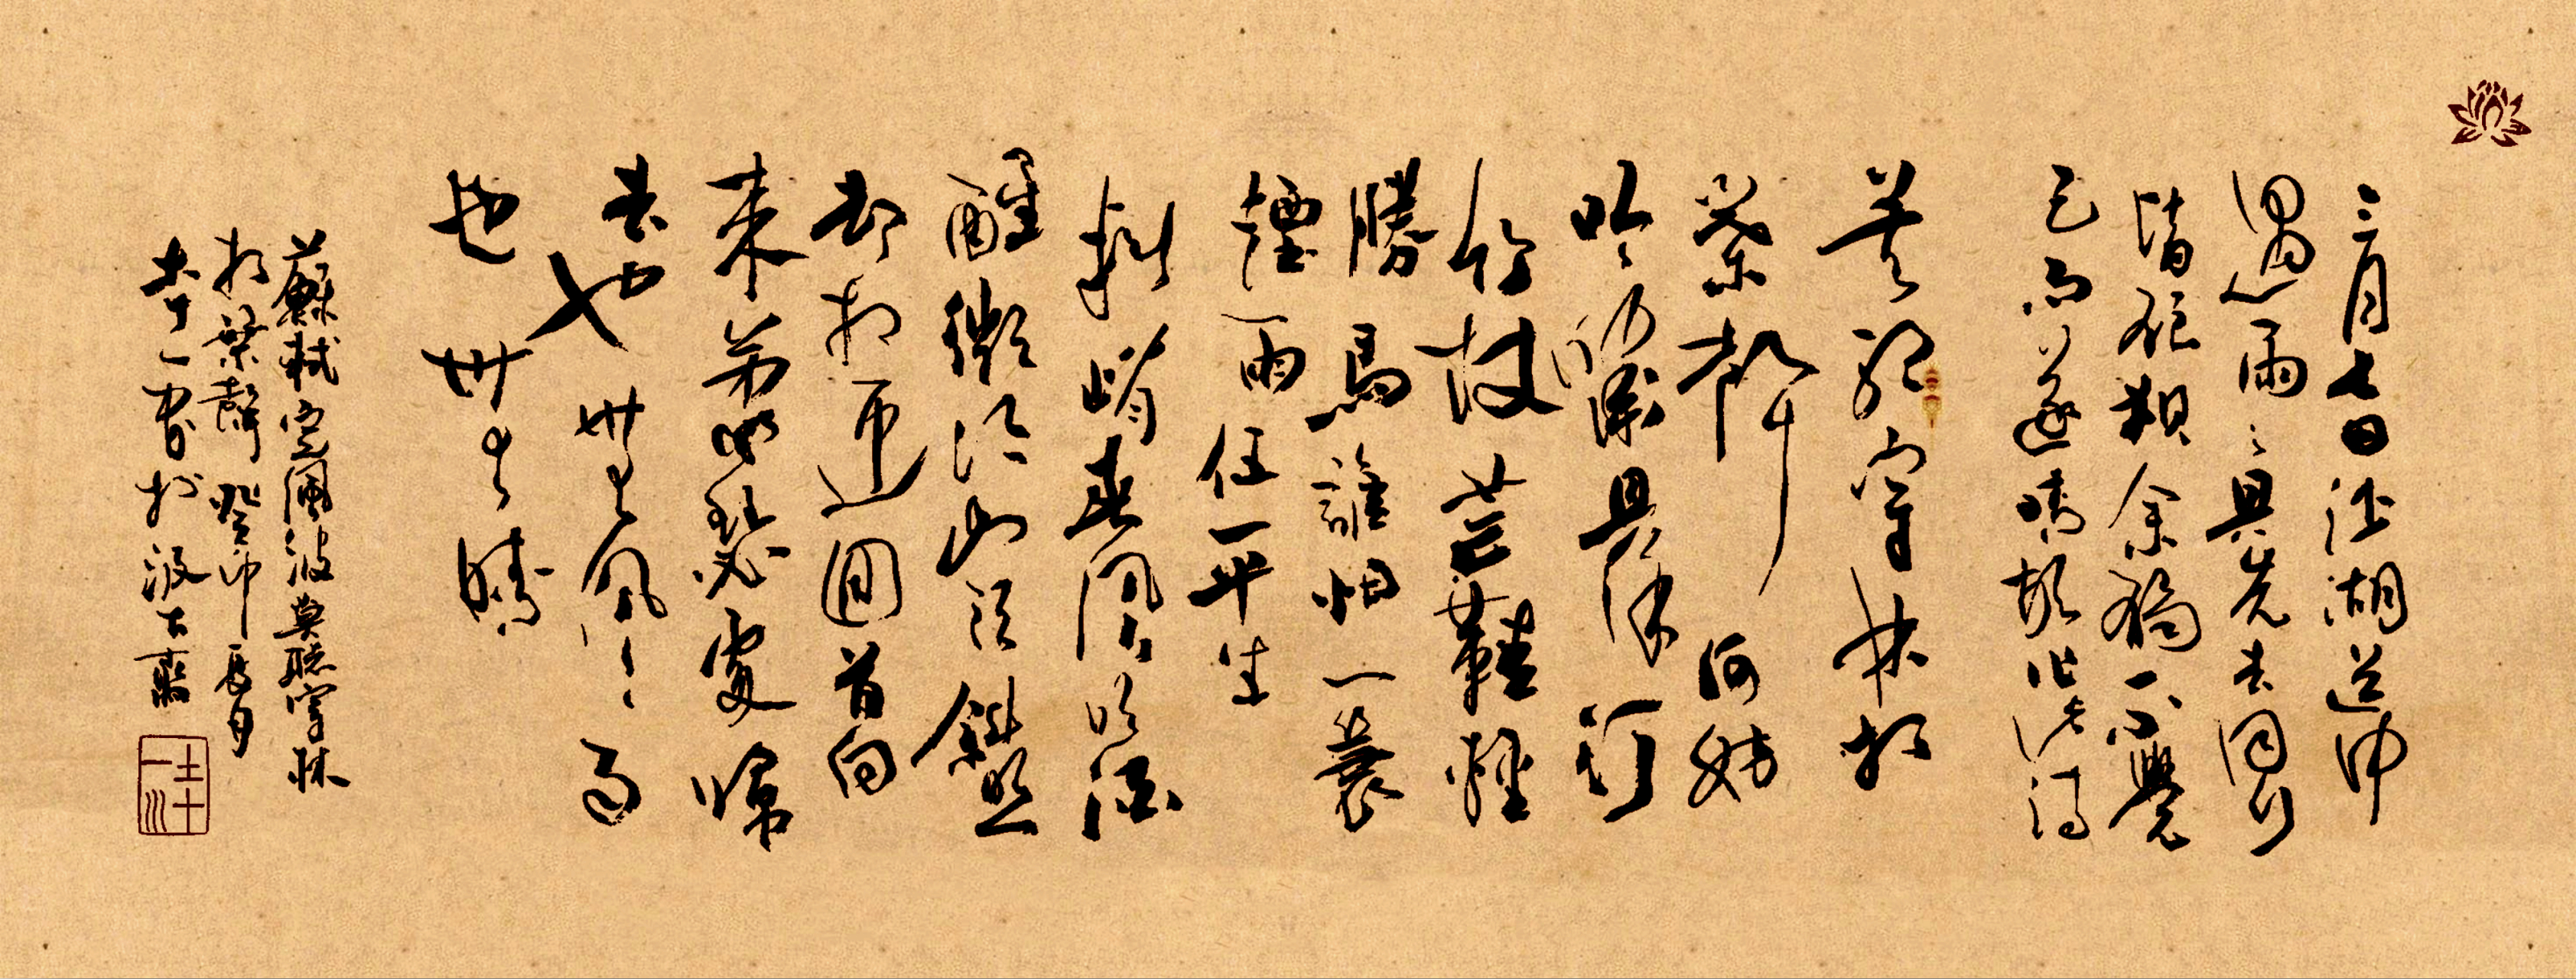 三月七日沙湖道中
遇雨〻具先去同行
皆狼狽余獨不覺
已而遂晴故作此詞
莫聽穿林打
葉聲何妨
吟嘯且徐行
竹杖芒鞋輕
勝馬誰怕一蓑
煙雨任平生
料峭春風吹酒
醒微冷山頭斜照
却相迎回首向
來蕭瑟處歸
去也無風〻雨
也無晴
蘇軾定風波莫聽穿林
打葉聲癸卯辰月
一書於